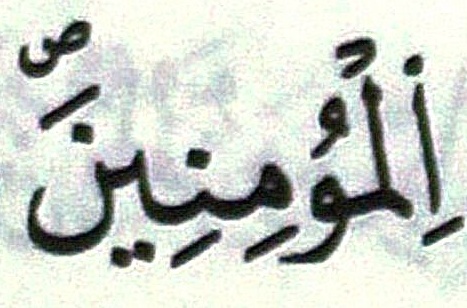 اِ۬لْمُؤْمِنِينَۖ